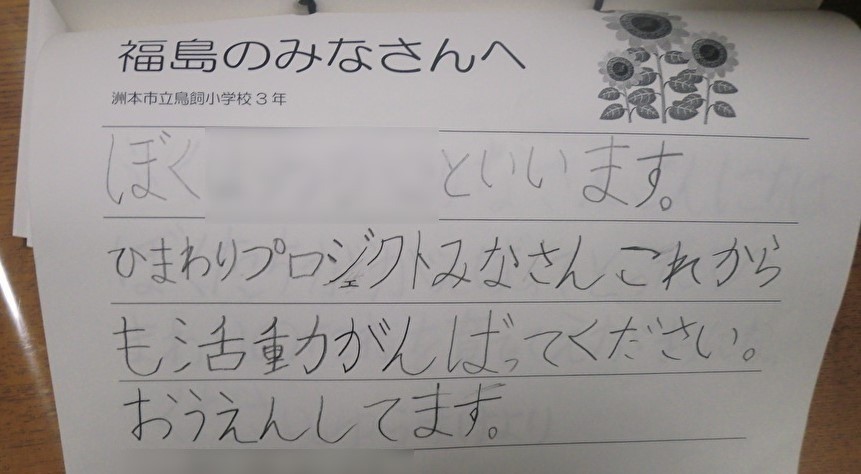 福島のみなさんへ
洲本市立鳥飼小学校3年
ぼく といいます。
ひまわりプロジェクトみなさんこれから
も活動がんばってください。
おうえんしてます。